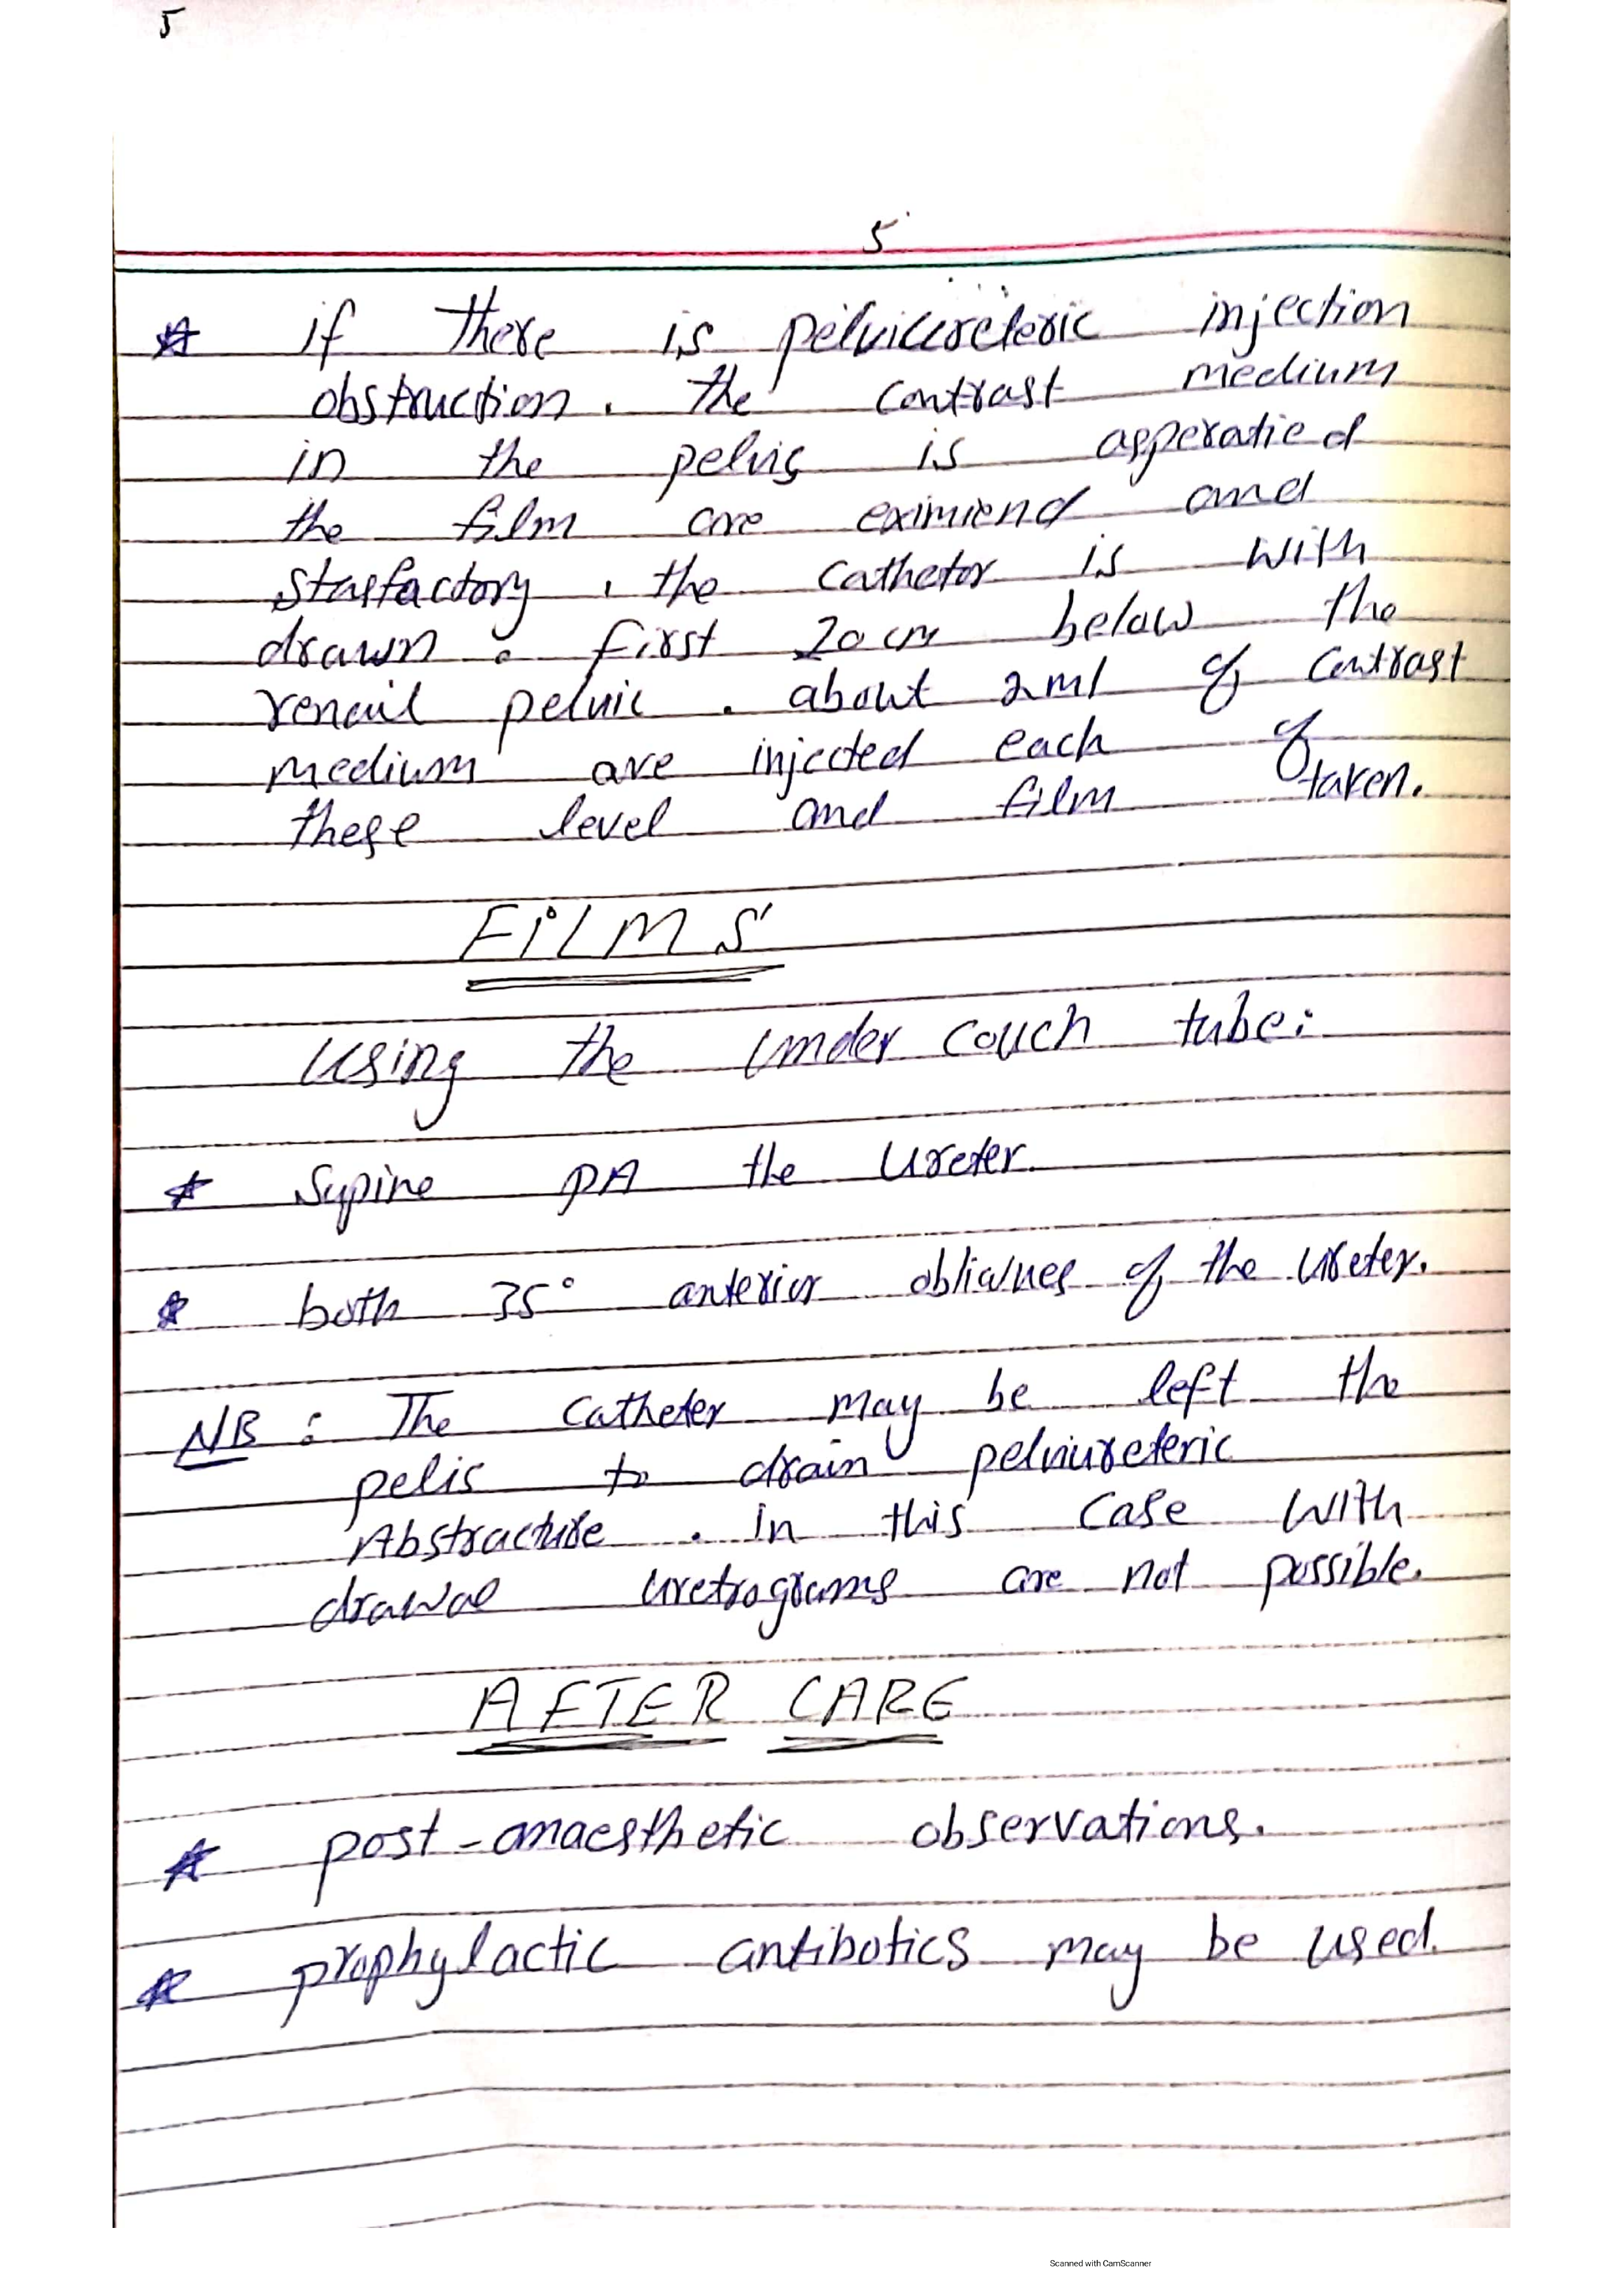 5
5
☆ if there is pelviureteric injection
obstruction. the contrast medium
in the pelvis is asperatied
the film are eximiend and
stasfactory, the cathetor is with
drawn. first 20 cm below the
renail pelvic. about 2 ml of contrast
medium are injected each of
these level and film taken.
FILMS
Using the under couch tube:
☆ Supine PA the Ureter.
☆ both 35° anterior obliques of the ureter.
NB: The catheter may be left the
pelis to drain pelviureteric
Abstracture. in this case with
drawal uretrograms are not possible.
AFTER CARE
☆ post-anaesthetic observations.
☆ prophylactic antibotics may be used.
Scanned with CamScanner